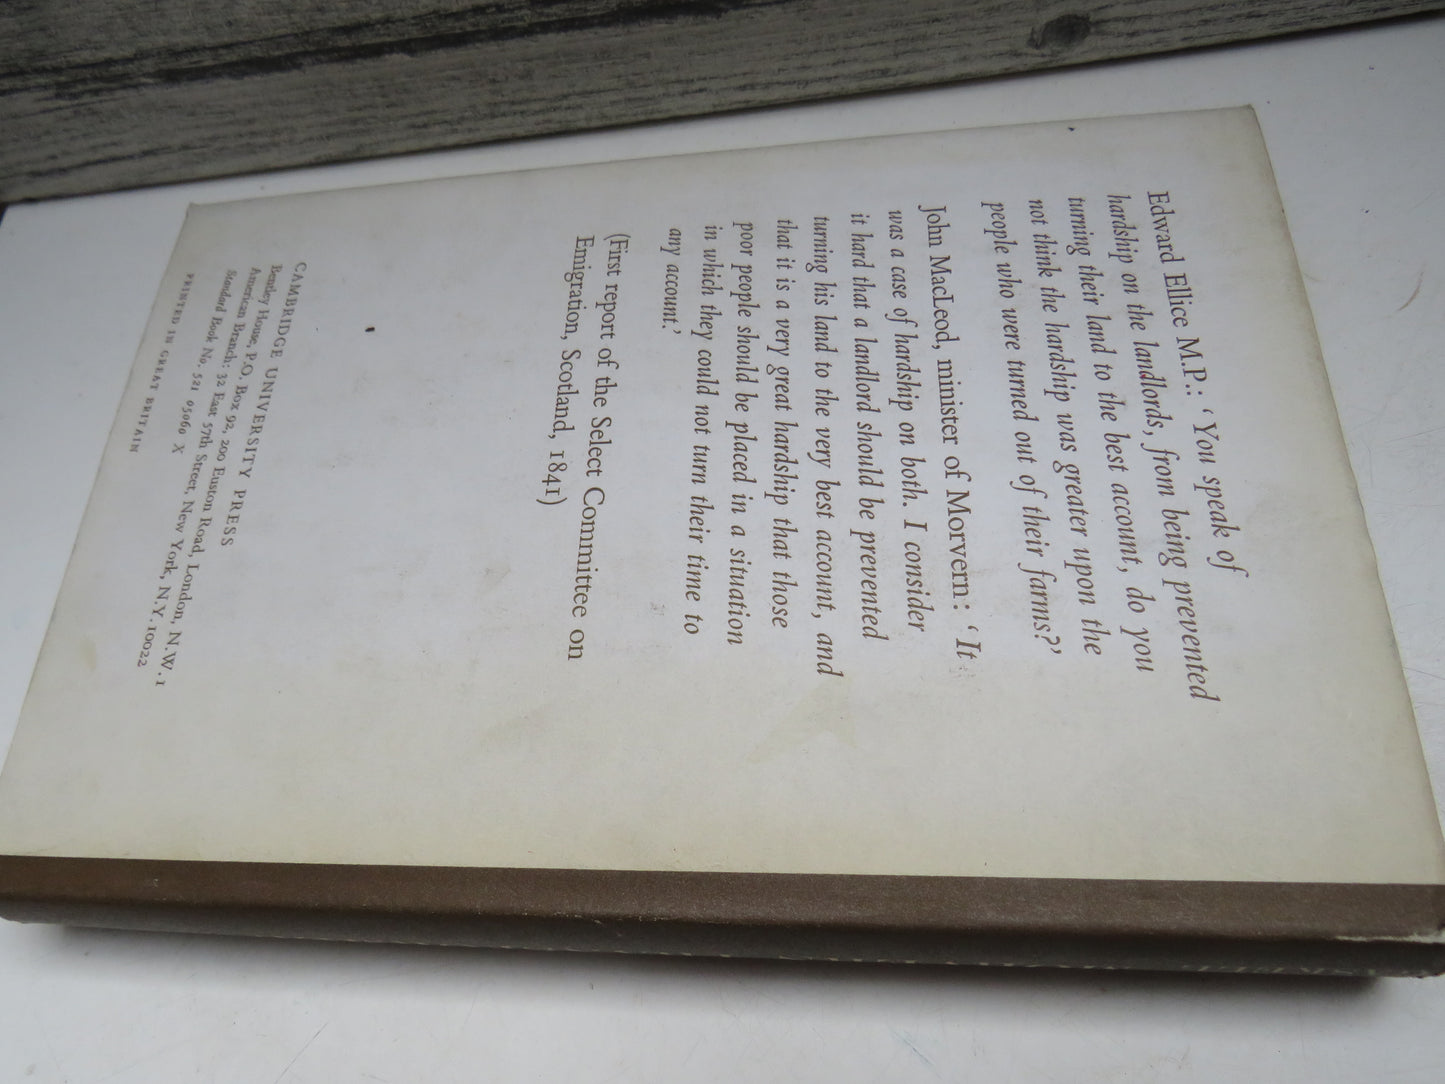 Edward Ellice M.P.: ‘You speak of
hardship on the landlords, from being prevented
turning their land to the best account, do you
not think the hardship was greater upon the
people who were turned out of their farms?’
John MacLeod, minister of Morvern: ‘It
was a case of hardship on both. I consider
it hard that a landlord should be prevented
turning his land to the very best account, and
that it is a very great hardship that those
poor people should be placed in a situation
in which they could not turn their time to
any account.’
(First report of the Select Committee on
Emigration, Scotland, 1841)
CAMBRIDGE UNIVERSITY PRESS
Bentley House, P.O. Box 92, 200 Euston Road, London, N.W.1
American Branch: 32 East 57th Street, New York, N.Y.10022
Standard Book No. 521 05060 X
PRINTED IN GREAT BRITAIN